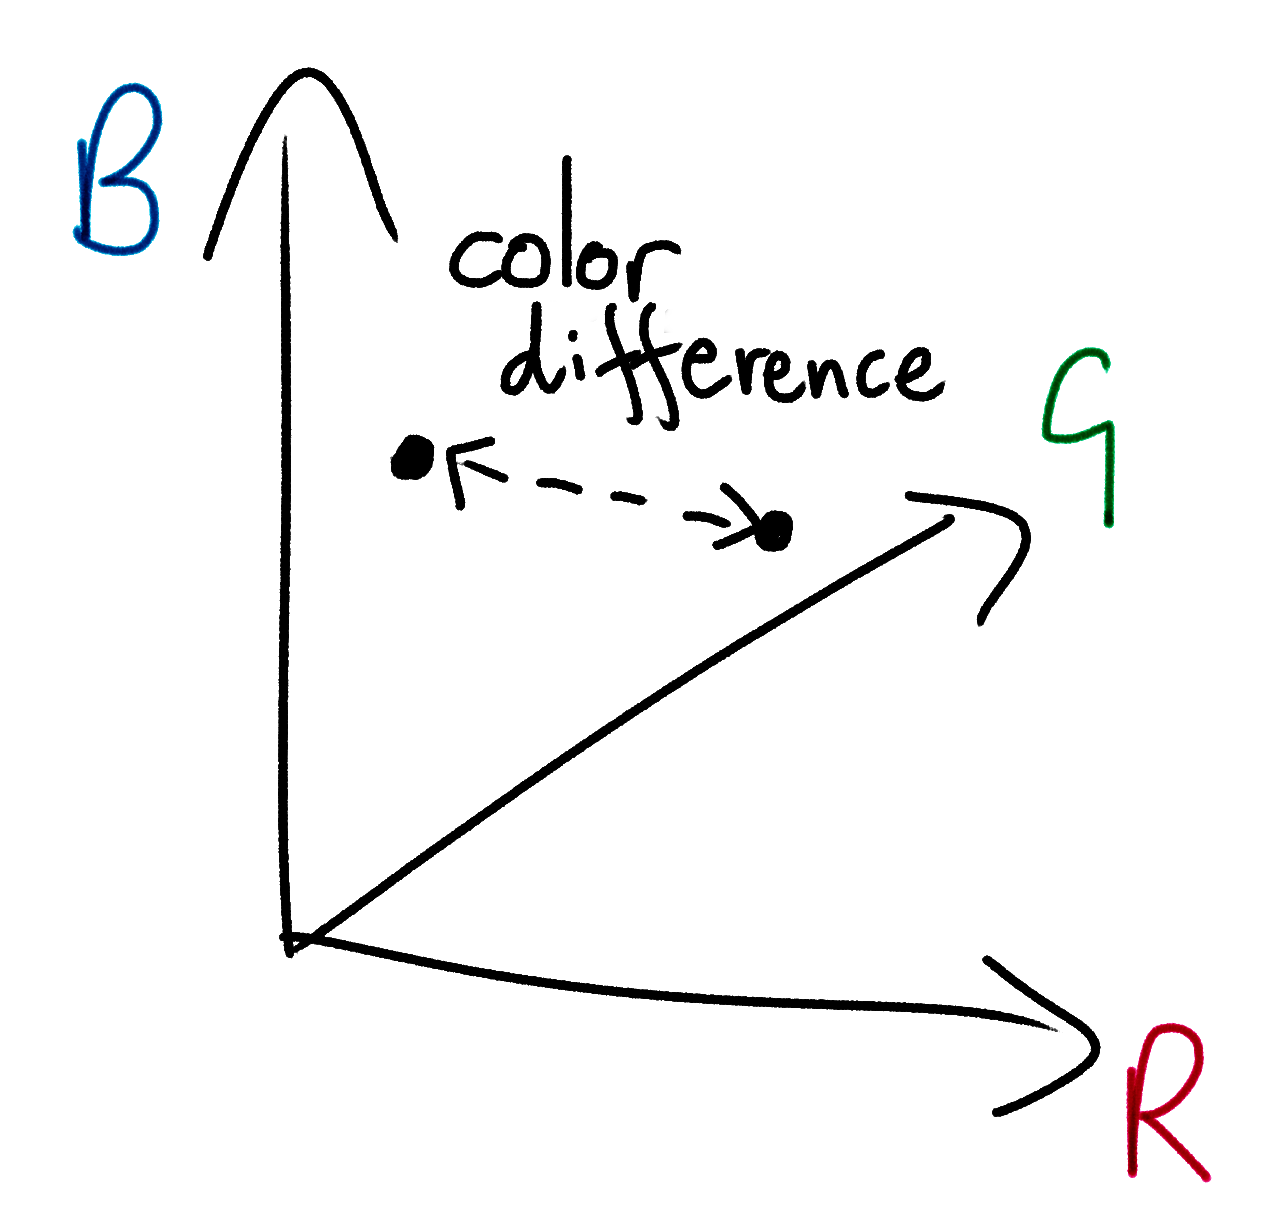 B
color
difference
G
R